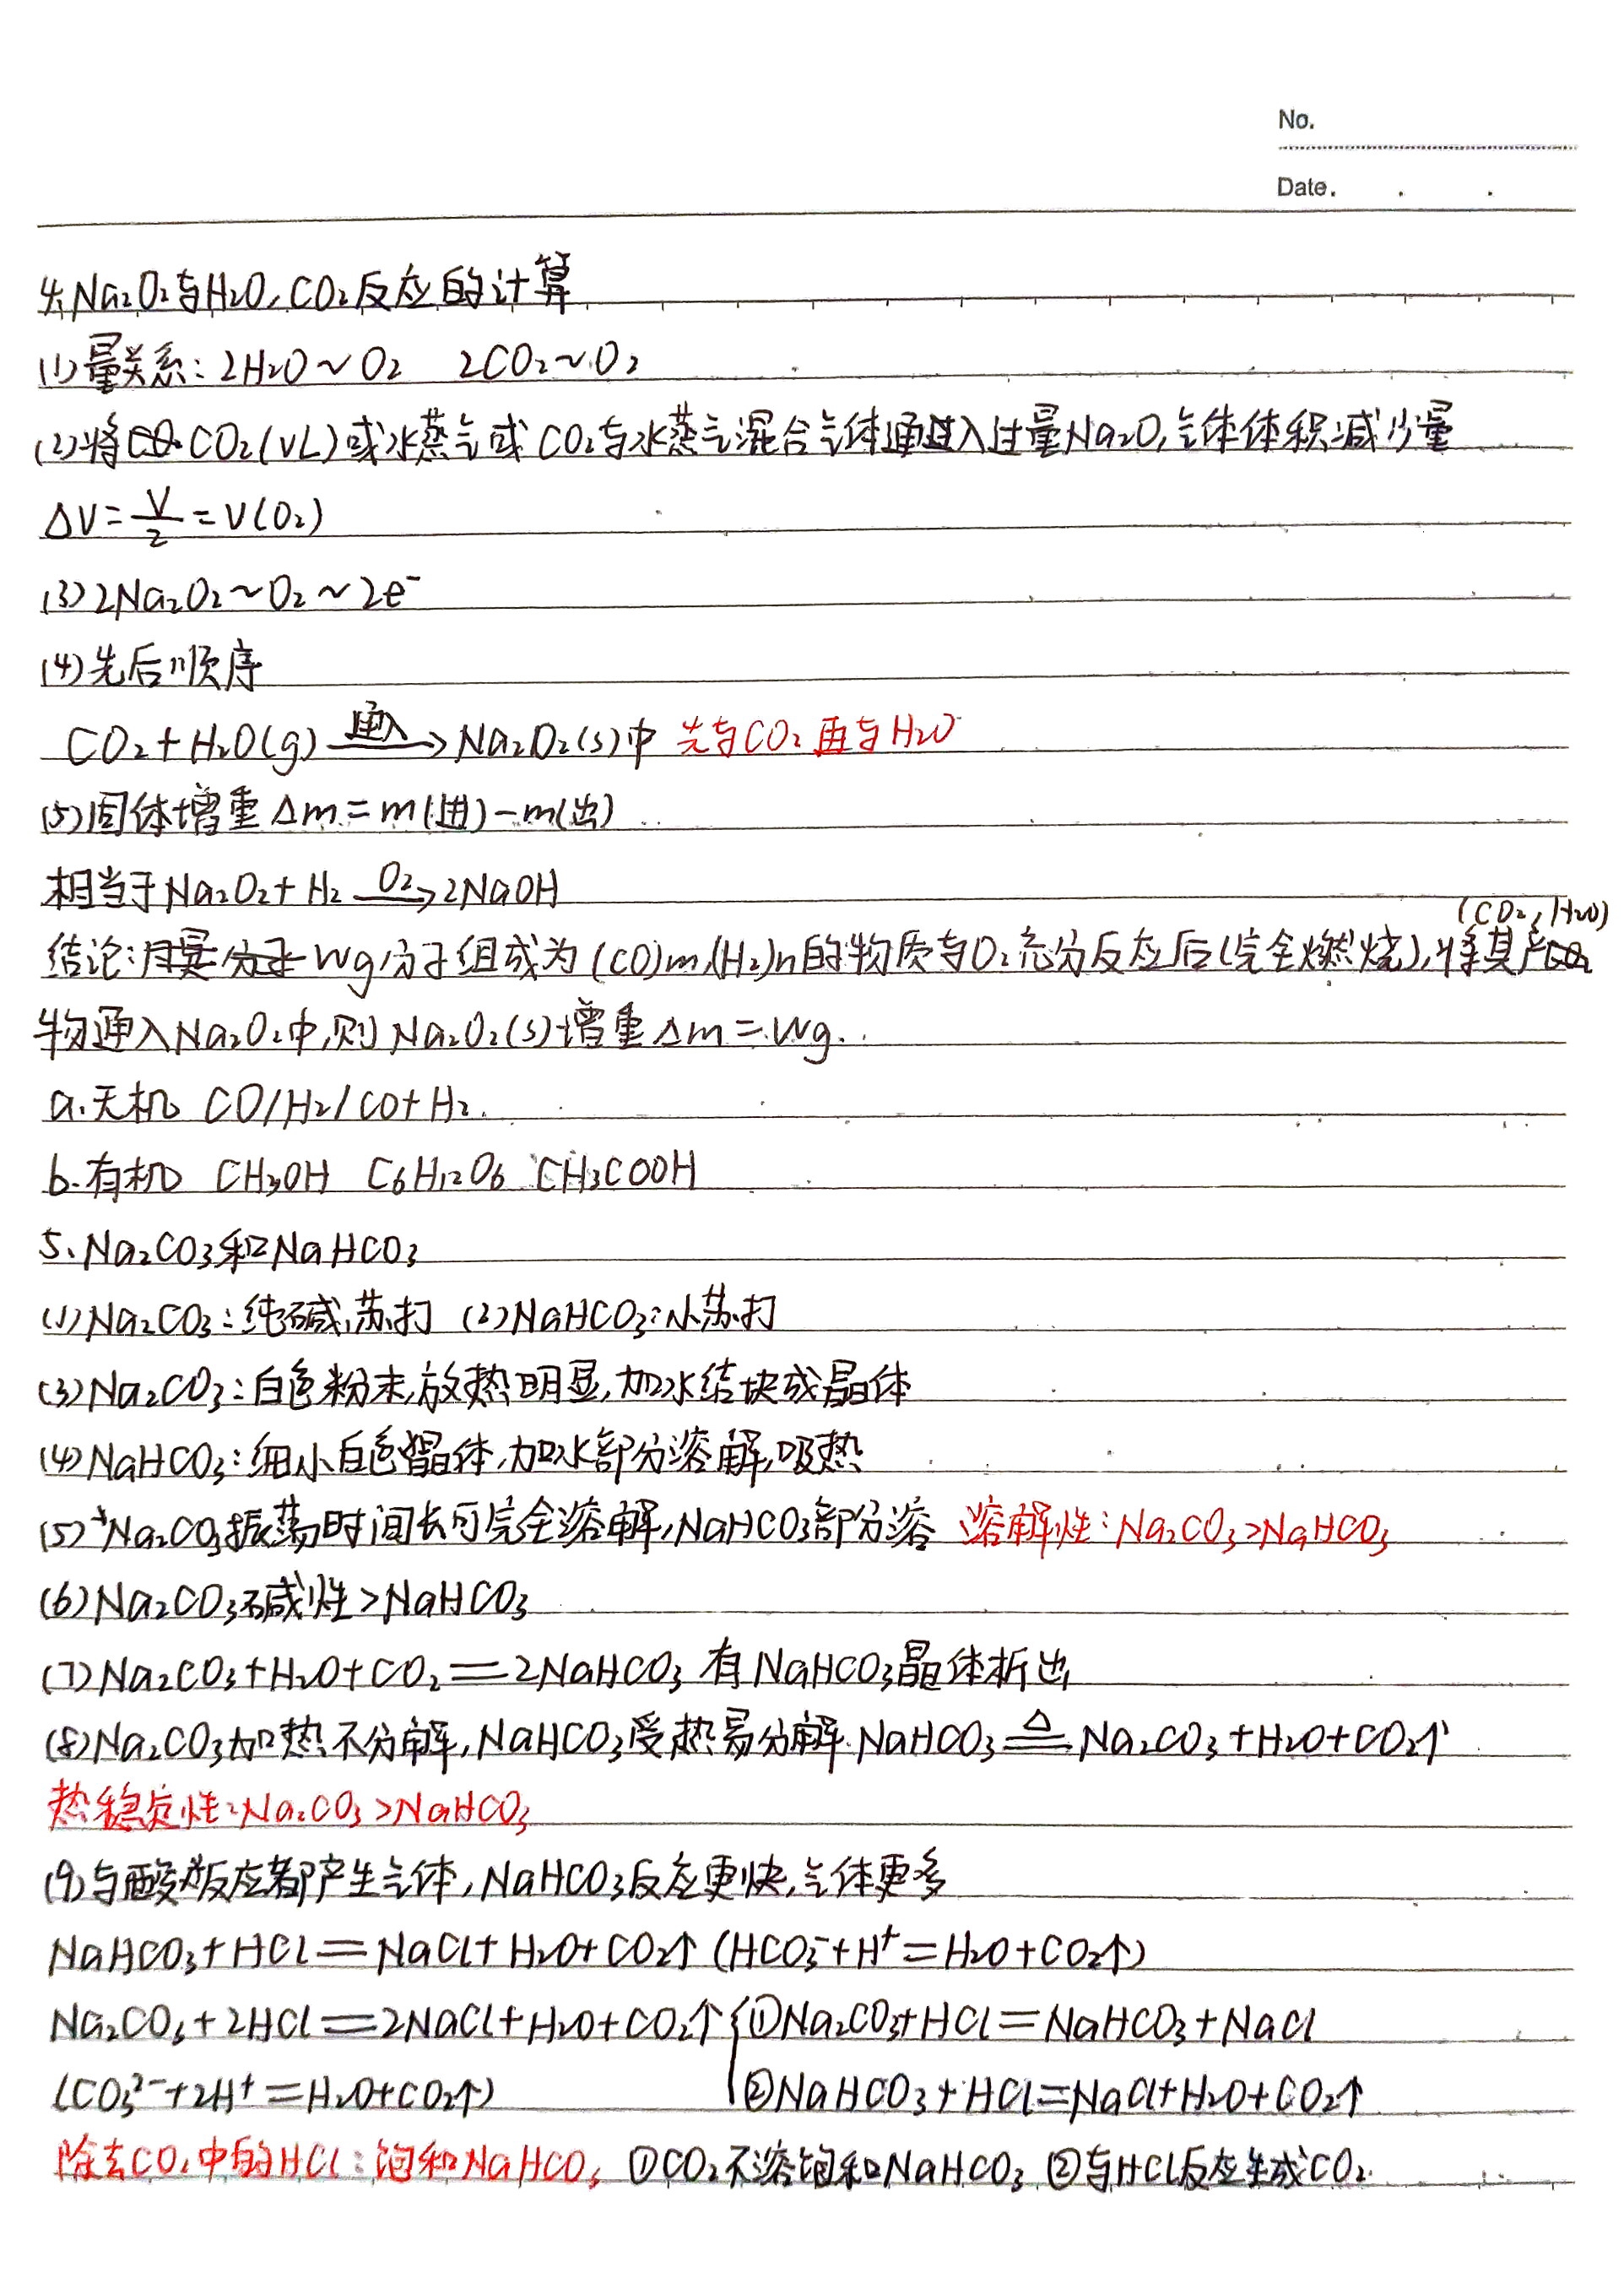 No.
Date.
4. Na₂O₂与H₂O、CO₂反应的计算
(1)量关系: 2H₂O~O₂ 2CO₂~O₂
(2)将CO₂(VL)或水蒸气或CO₂与水蒸气混合气体通入过量Na₂O,气体体积减少量
ΔV=V/2=V(O₂)
(3)2Na₂O₂~O₂~2e⁻
(4)先后顺序
CO₂+H₂O(g) —通入→ Na₂O₂(s)中 先与CO₂再与H₂O
(5)固体增重Δm=m(进)-m(出)
相当于Na₂O₂+H₂ —O₂→ 2NaOH
(CO₂,H₂O)
结论: Wg分子组成为(CO)m·(H₂)n的物质与O₂充分反应后(完全燃烧),将其产
物通入Na₂O₂中,则Na₂O₂(s)增重Δm=Wg.
a.无机 CO/H₂/CO+H₂.
b.有机 CH₃OH C₆H₁₂O₆ CH₃COOH
5、Na₂CO₃和NaHCO₃
(1)Na₂CO₃:纯碱,苏打 (2)NaHCO₃:小苏打
(3)Na₂CO₃:白色粉末,放热明显,加水结块成晶体
(4)NaHCO₃:细小白色晶体,加水部分溶解,吸热
(5)Na₂CO₃振荡时间长可完全溶解,NaHCO₃部分溶 溶解性:Na₂CO₃>NaHCO₃
(6)Na₂CO₃碱性>NaHCO₃
(7)Na₂CO₃+H₂O+CO₂=2NaHCO₃ 有NaHCO₃晶体析出
(8)Na₂CO₃加热不分解,NaHCO₃受热易分解.NaHCO₃ =△= Na₂CO₃+H₂O+CO₂↑
热稳定性:Na₂CO₃>NaHCO₃
(9)与酸反应都产生气体,NaHCO₃反应更快,气体更多
NaHCO₃+HCl=NaCl+H₂O+CO₂↑ (HCO₃⁻+H⁺=H₂O+CO₂↑)
Na₂CO₃+2HCl=2NaCl+H₂O+CO₂↑ {①Na₂CO₃+HCl=NaHCO₃+NaCl
(CO₃²⁻+2H⁺=H₂O+CO₂↑) ②NaHCO₃+HCl=NaCl+H₂O+CO₂↑
除去CO₂中的HCl:饱和NaHCO₃ ①CO₂不溶饱和NaHCO₃ ②与HCl反应生成CO₂